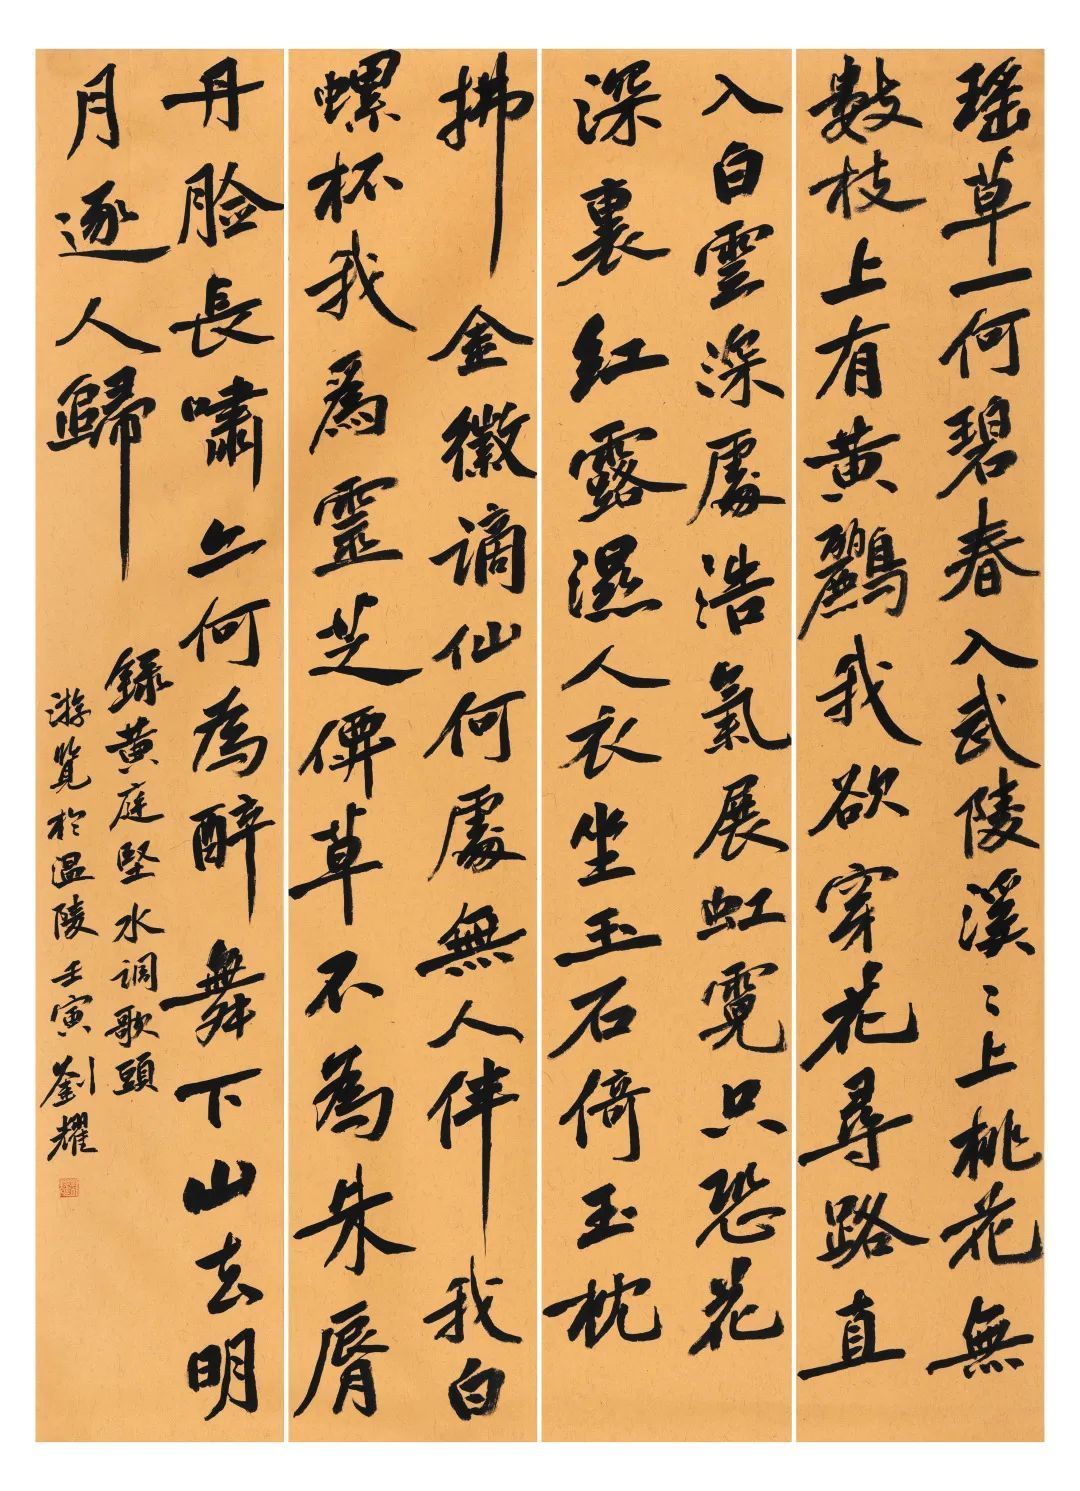 瑤草一何碧春入武陵溪〻上桃花無
數枝上有黄鸝我欲穿花尋路直
入白雲深處浩氣展虹霓只恐花
深裏紅露濕人衣坐玉石倚玉枕
拂金徽謫仙何處無人伴我白
螺杯我爲靈芝僊草不為朱脣
丹臉長嘯亦何為醉舞下山去明
月逐人歸
録黄庭堅水調歌頭
游覽於温陵壬寅劉耀